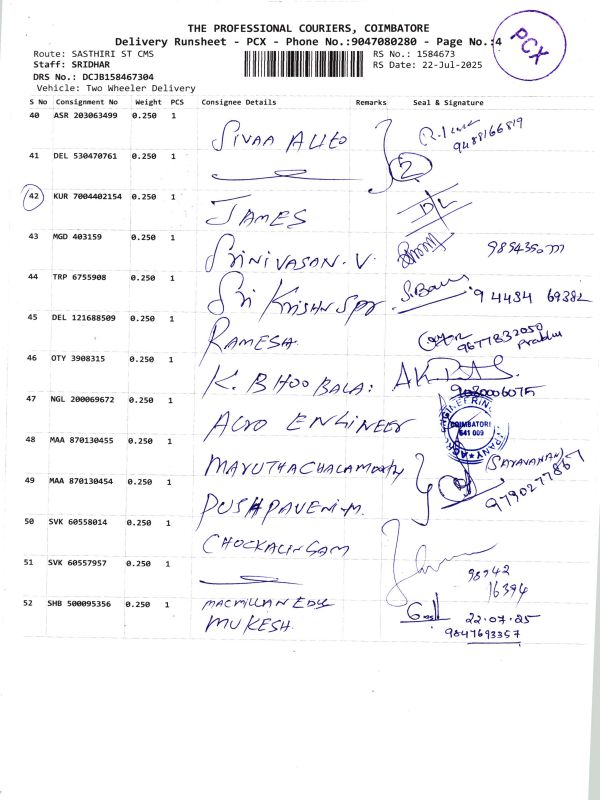 THE PROFESSIONAL COURIERS, COIMBATORE
Delivery Runsheet - PCX - Phone No.:9047080280 - Page No.:4
PCX
Route: SASTHIRI ST CMS RS No.: 1584673
Staff: SRIDHAR RS Date: 22-Jul-2025
DRS No.: DCJB158467304
Vehicle: Two Wheeler Delivery
S No Consignment No Weight PCS Consignee Details Remarks Seal & Signature
40 ASR 203063499 0.250 1 SIVAA AUTO 9488166819
41 DEL 530470761 0.250 1 2
42 KUR 7004402154 0.250 1 JAMES D/L
43 MGD 403159 0.250 1 SRINIVASAN.V.
44 TRP 6755908 0.250 1 SRI KRISHN SPR 94434 69382
45 DEL 121688509 0.250 1 RAMESH. 9677832050 Prabhu
46 OTY 3908315 0.250 1 K.BHOOBALA:
47 NGL 200069672 0.250 1 ACRO ENGINEER COIMBATORE 641 009
48 MAA 870130455 0.250 1 MARUTHACHALAMOORTHY (SARAVANAN)
49 MAA 870130454 0.250 1 PUSHPAVENI.M. 9790277867
50 SVK 60558014 0.250 1 CHOCKALINGAM
51 SVK 60557957 0.250 1 98942 16394
52 SHB 500095356 0.250 1 MACMILLAN EDU 22.07.25
MUKESH. 9847693357